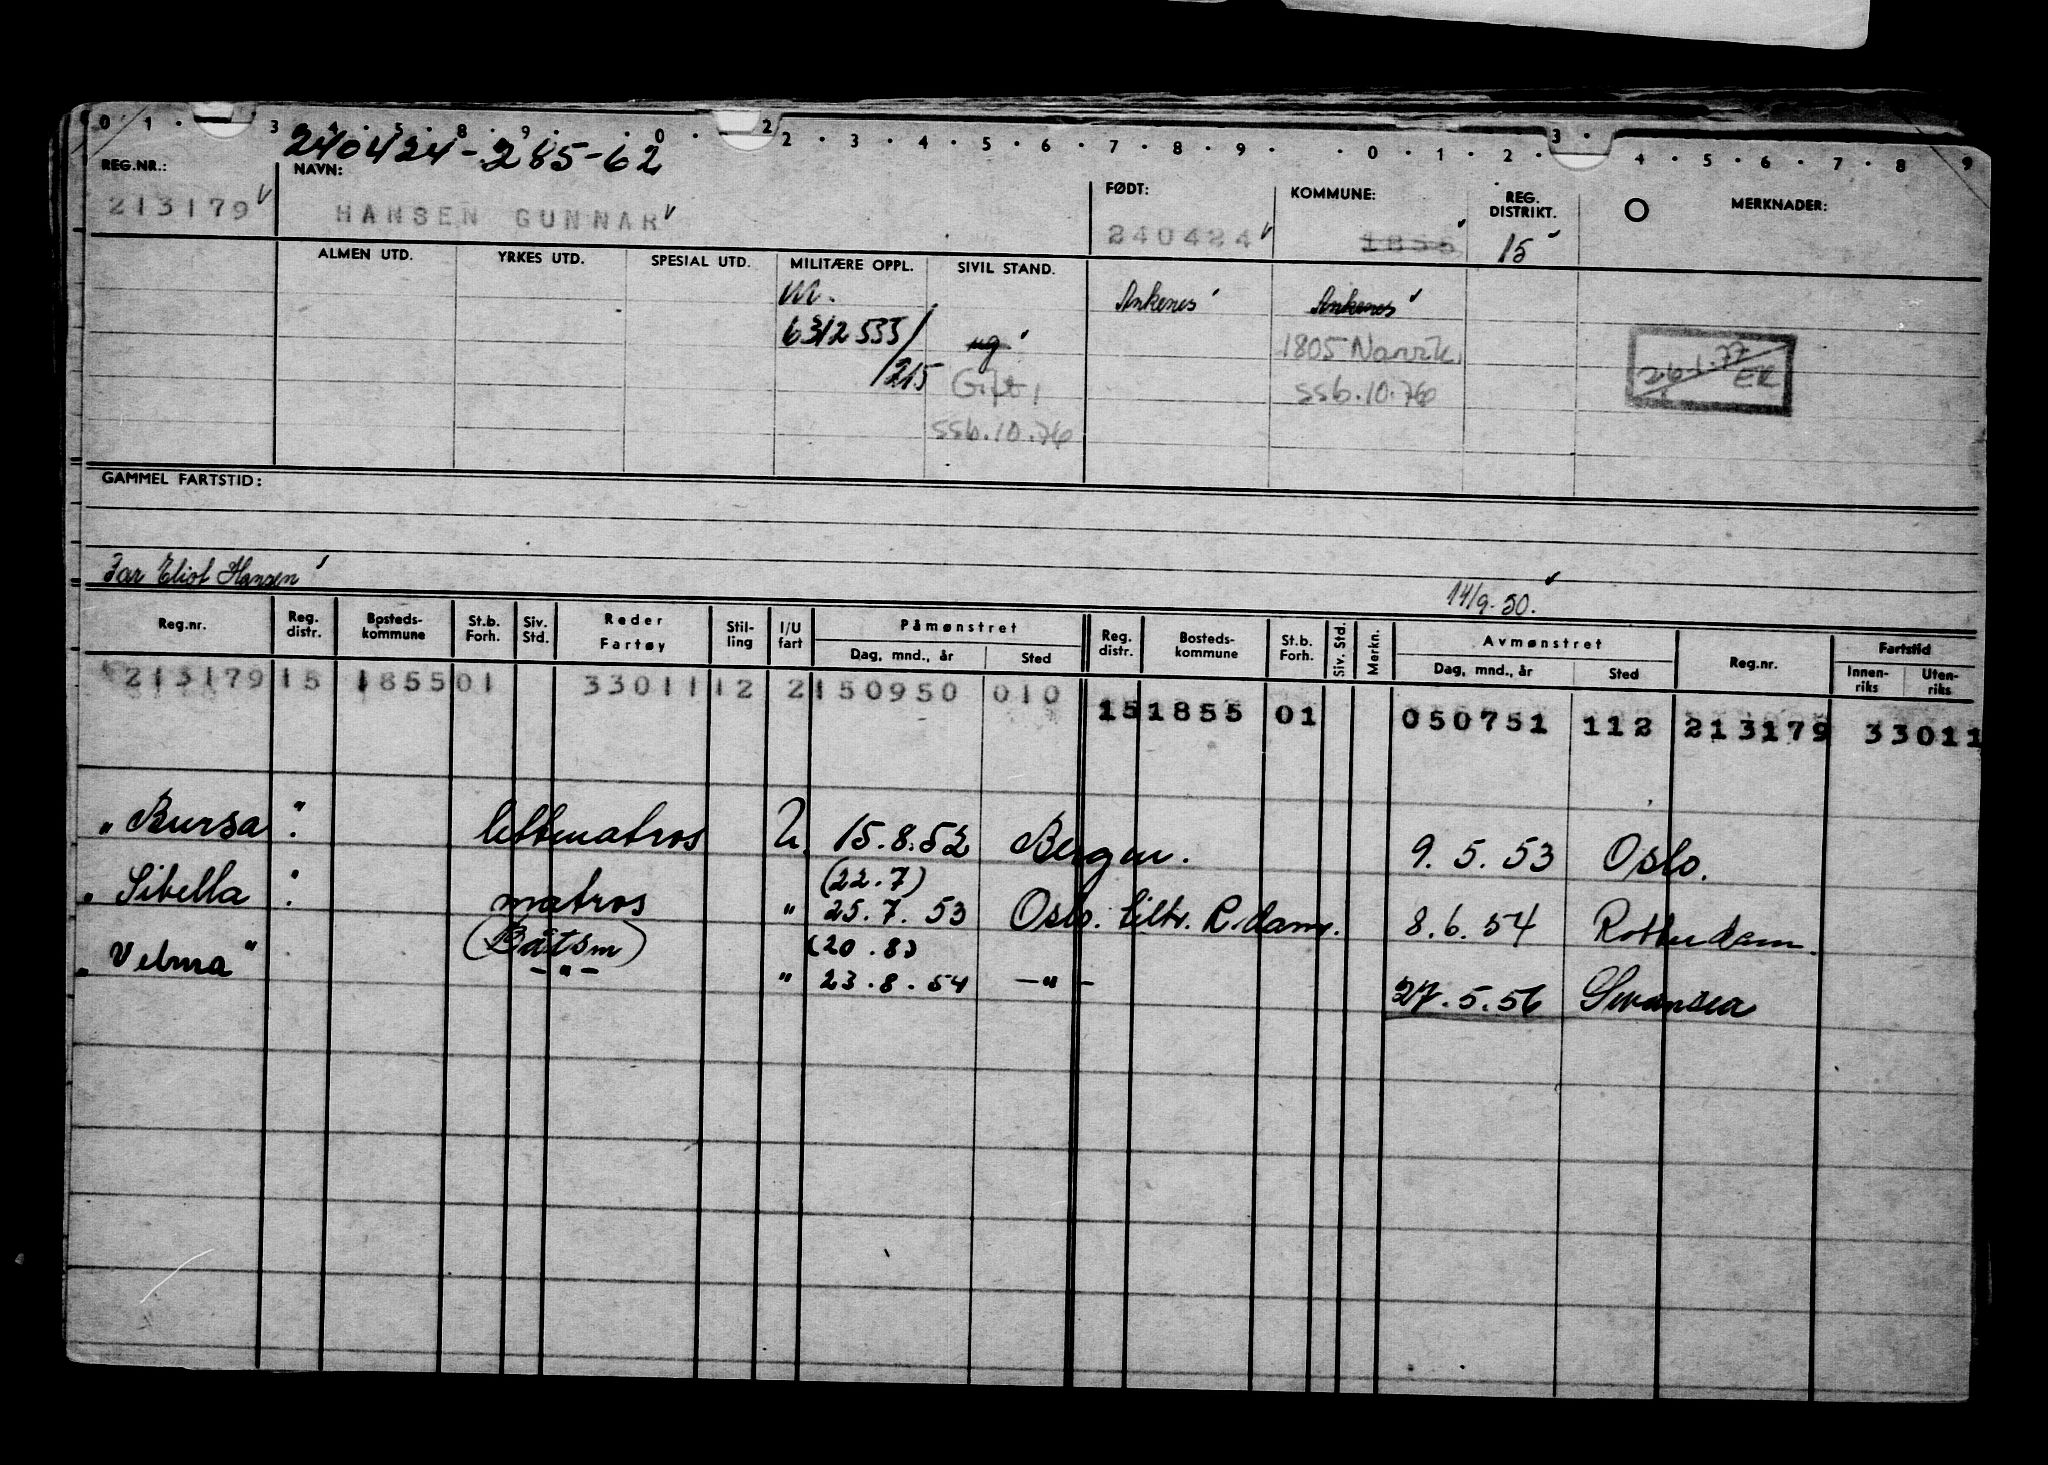 0 1 . 3 4 . 5 . 8 . 9 . . 0 . 2 2 . 3 . 4 . 5 . 6 . 7 . 8 . 9 . . 0 . 1 . 2 . 3 . 4 . 5 . 6 . 7 . 8 9
240424-285-62
REG.NR.: NAVN: FØDT: KOMMUNE: REG. DISTRIKT. O MERKNADER:
213179 HANSEN GUNNAR 240424 1855 15
ALMEN UTD. YRKES UTD. SPESIAL UTD. MILITÆRE OPPL. SIVIL STAND.
M. Ankenes Ankenes
6312535/ ug 1805 Narvik
/215 Gift, ssb.10.76 26.1.77 ER
ssb.10.76
GAMMEL FARTSTID:
Far Eliot Hansen 14/9-50.
Reg.nr. Reg. distr. Bosteds-kommune St.b. Forh. Siv. Std. Reder Fartøy Stil-ling I/U fart Påmønstret Dag, mnd., år Sted Reg. distr. Bosteds-kommune St.b. Forh. Siv. Std. Merkn. Avmønstret Dag, mnd., år Sted Reg.nr. Fartstid Innen-riks Uten-riks
213179 15 1855 01 33011 12 2 150950 010 15 1855 01 050751 112 213179 33011
"Bursa" lettmatros U. 15.8.52 Bergen. 9.5.53 Oslo.
(22.7)
"Sibella" matros " 25.7.53 Oslo. tiltr. R.dam. 8.6.54 Rotterdam
(Båtsm) (20.8)
"Velma" -"- " 23.8.54 -"- 27.5.56 Swansea